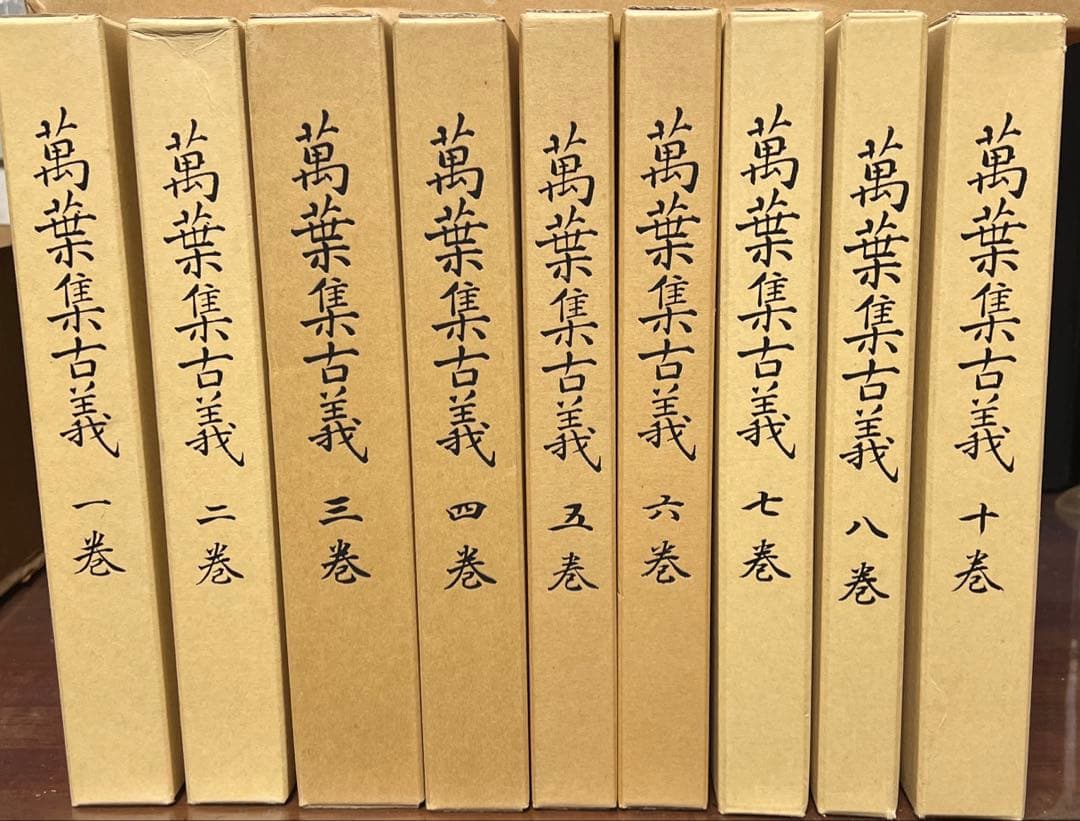 萬葉集古義 一巻
萬葉集古義 二巻
萬葉集古義 三巻
萬葉集古義 四巻
萬葉集古義 五巻
萬葉集古義 六巻
萬葉集古義 七巻
萬葉集古義 八巻
萬葉集古義 十巻